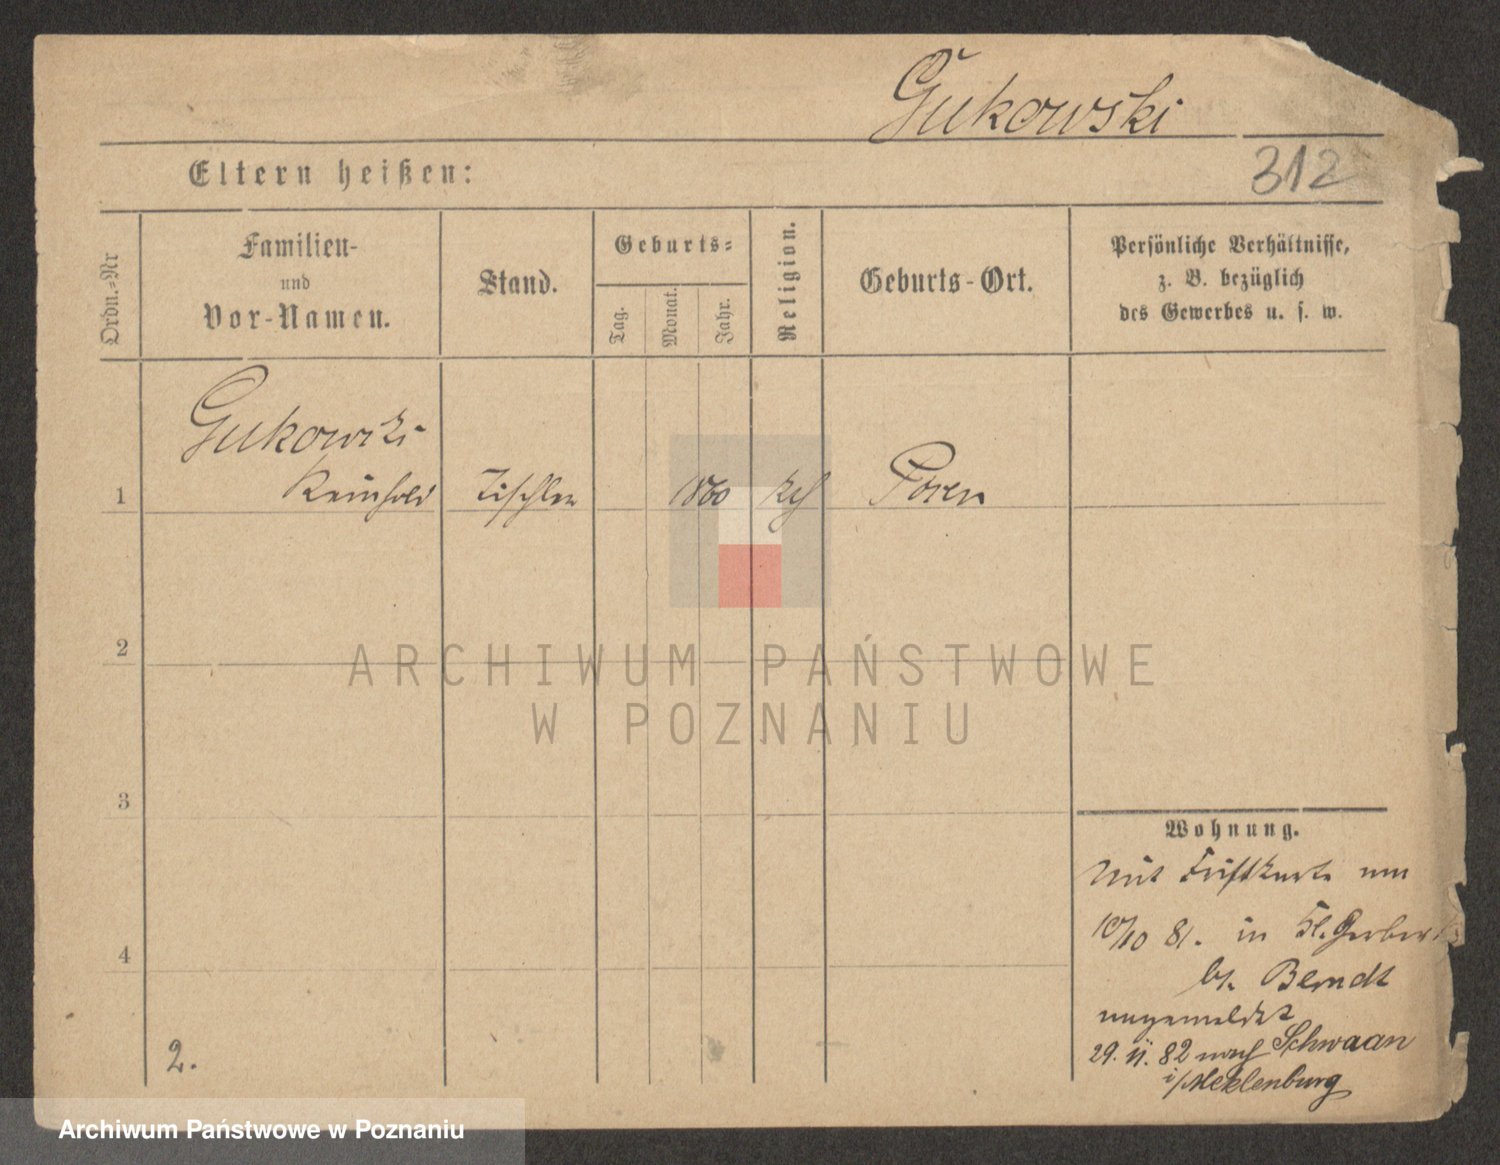 Gukowski
Eltern heißen:
312
Ordn.=Nr
Familien-
und
Vor-Namen.
Stand.
Geburts=
Tag.
Monat.
Jahr.
Religion.
Geburts-Ort.
Persönliche Verhältnisse,
z. B. bezüglich
des Gewerbes u. s. w.
Gukowski
1 Reinhold Tischler 1860 kth Posen
2
3
4
Wohnung.
Mit Fristkarte
10/10 81. in Kl. Gerber
b. Berndt
angemeldet
29. 11. 82 nach Schwaan
i/Meklenburg
2.
ARCHIWUM PAŃSTWOWE
W POZNANIU
Archiwum Państwowe w Poznaniu